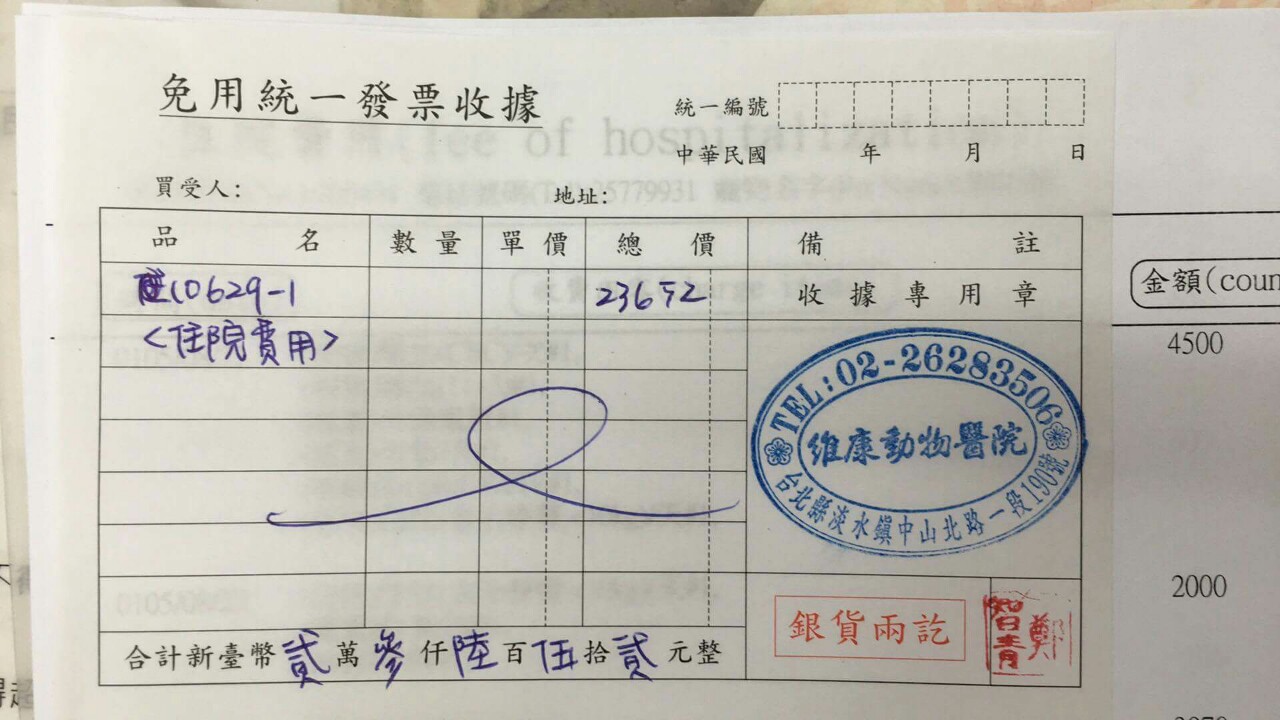 免用統一發票收據
統一編號
中華民國 年 月 日
買受人： 地址：
品名 數量 單價 總價 備註
C10629-1 23652 收據專用章
<住院費用>
TEL:02-26283506
維康動物醫院
台北縣淡水鎮中山北路一段190號
銀貨兩訖
合計新臺幣貳萬參仟陸百伍拾貳元整
金額(coun
4500
2000